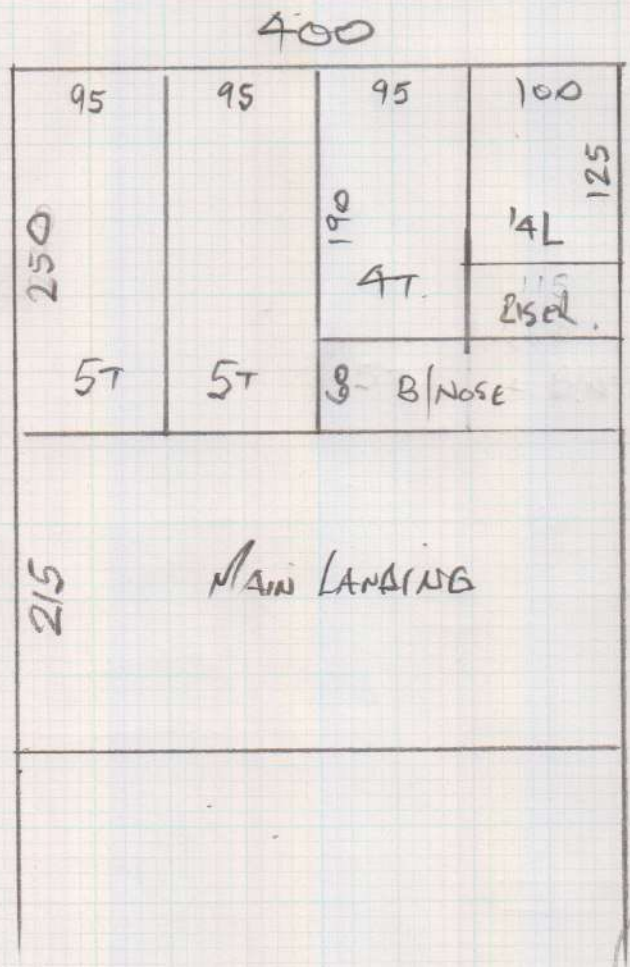 400
95 95 95 100
125
250
190
'4L
4T.
RISER.
5T 5T B/NOSE
215
MAIN LANDING